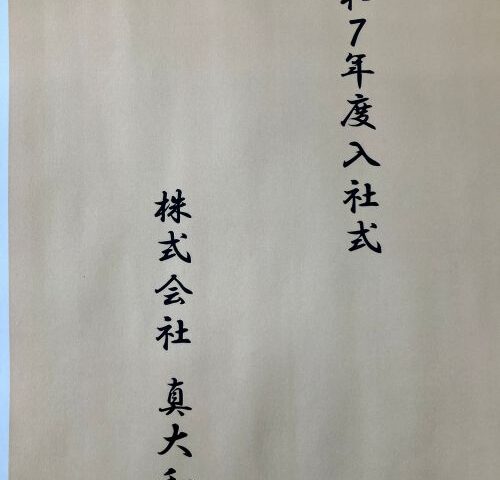 和7年度入社式
株式会社 真大